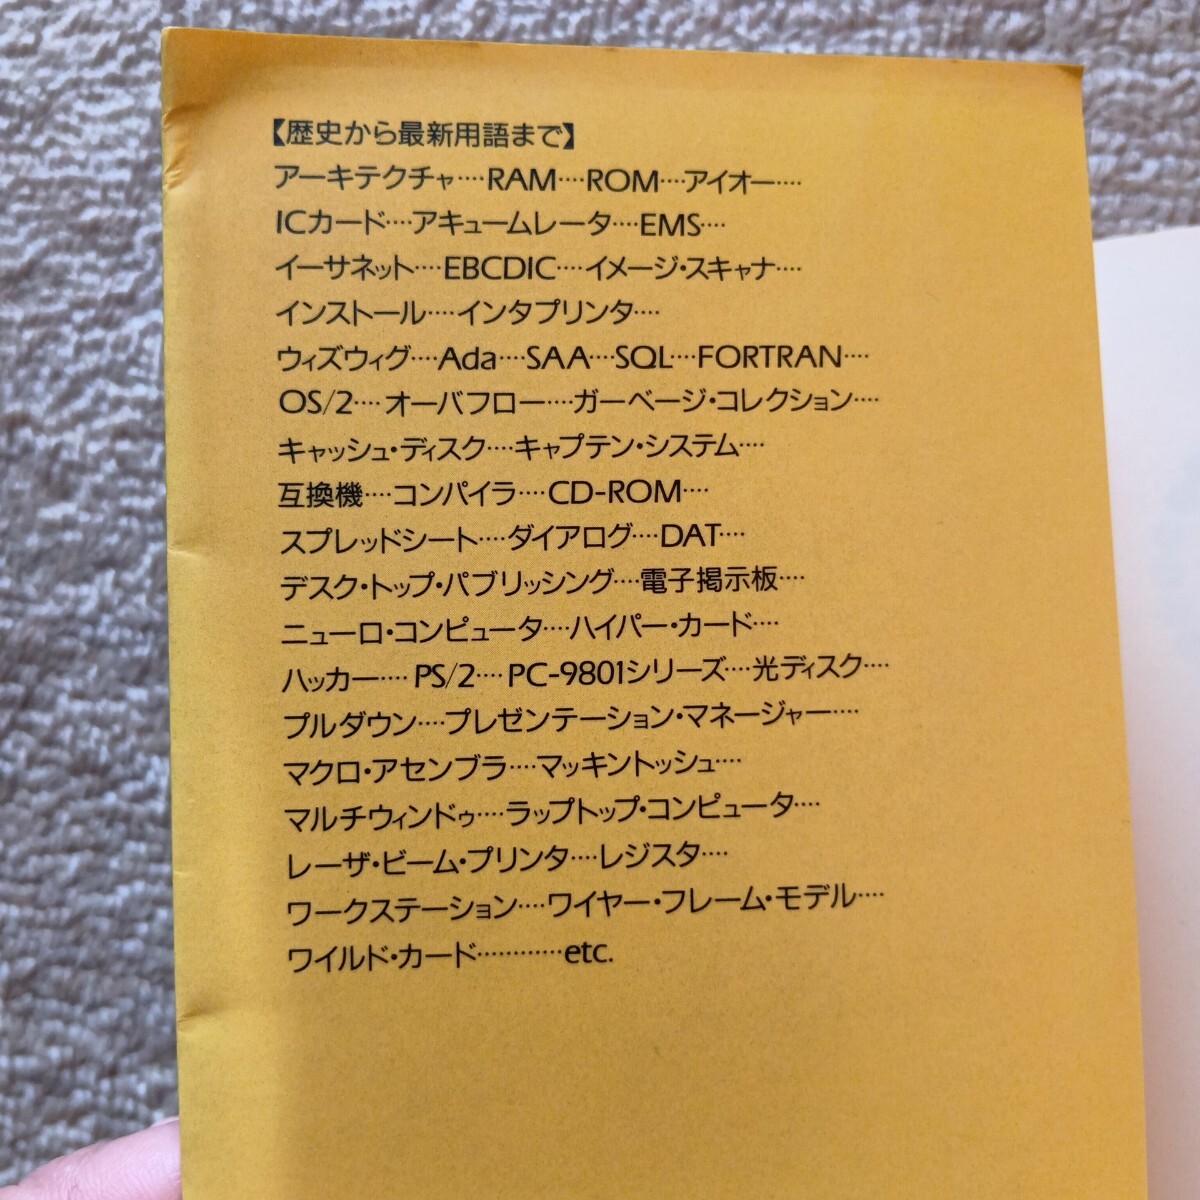 【歴史から最新用語まで】
アーキテクチャ‥‥RAM‥‥ROM‥‥アイオー‥‥
ICカード‥‥アキュームレータ‥‥EMS‥‥
イーサネット‥‥EBCDIC‥‥イメージ・スキャナ‥‥
インストール‥‥インタプリンタ‥‥
ウィズウィグ‥‥Ada‥‥SAA‥‥SQL‥‥FORTRAN‥‥
OS/2‥‥オーバフロー‥‥ガーベージ・コレクション‥‥
キャッシュ・ディスク‥‥キャプテン・システム‥‥
互換機‥‥コンパイラ‥‥CD-ROM‥‥
スプレッドシート‥‥ダイアログ‥‥DAT‥‥
デスク・トップ・パブリッシング‥‥電子掲示板‥‥
ニューロ・コンピュータ‥‥ハイパー・カード‥‥
ハッカー‥‥PS/2‥‥PC-9801シリーズ‥‥光ディスク‥‥
プルダウン‥‥プレゼンテーション・マネージャー‥‥
マクロ・アセンブラ‥‥マッキントッシュ‥‥
マルチウィンドゥ‥‥ラップトップ・コンピュータ‥‥
レーザ・ビーム・プリンタ‥‥レジスタ‥‥
ワークステーション‥‥ワイヤー・フレーム・モデル‥‥
ワイルド・カード‥‥‥‥‥‥etc.